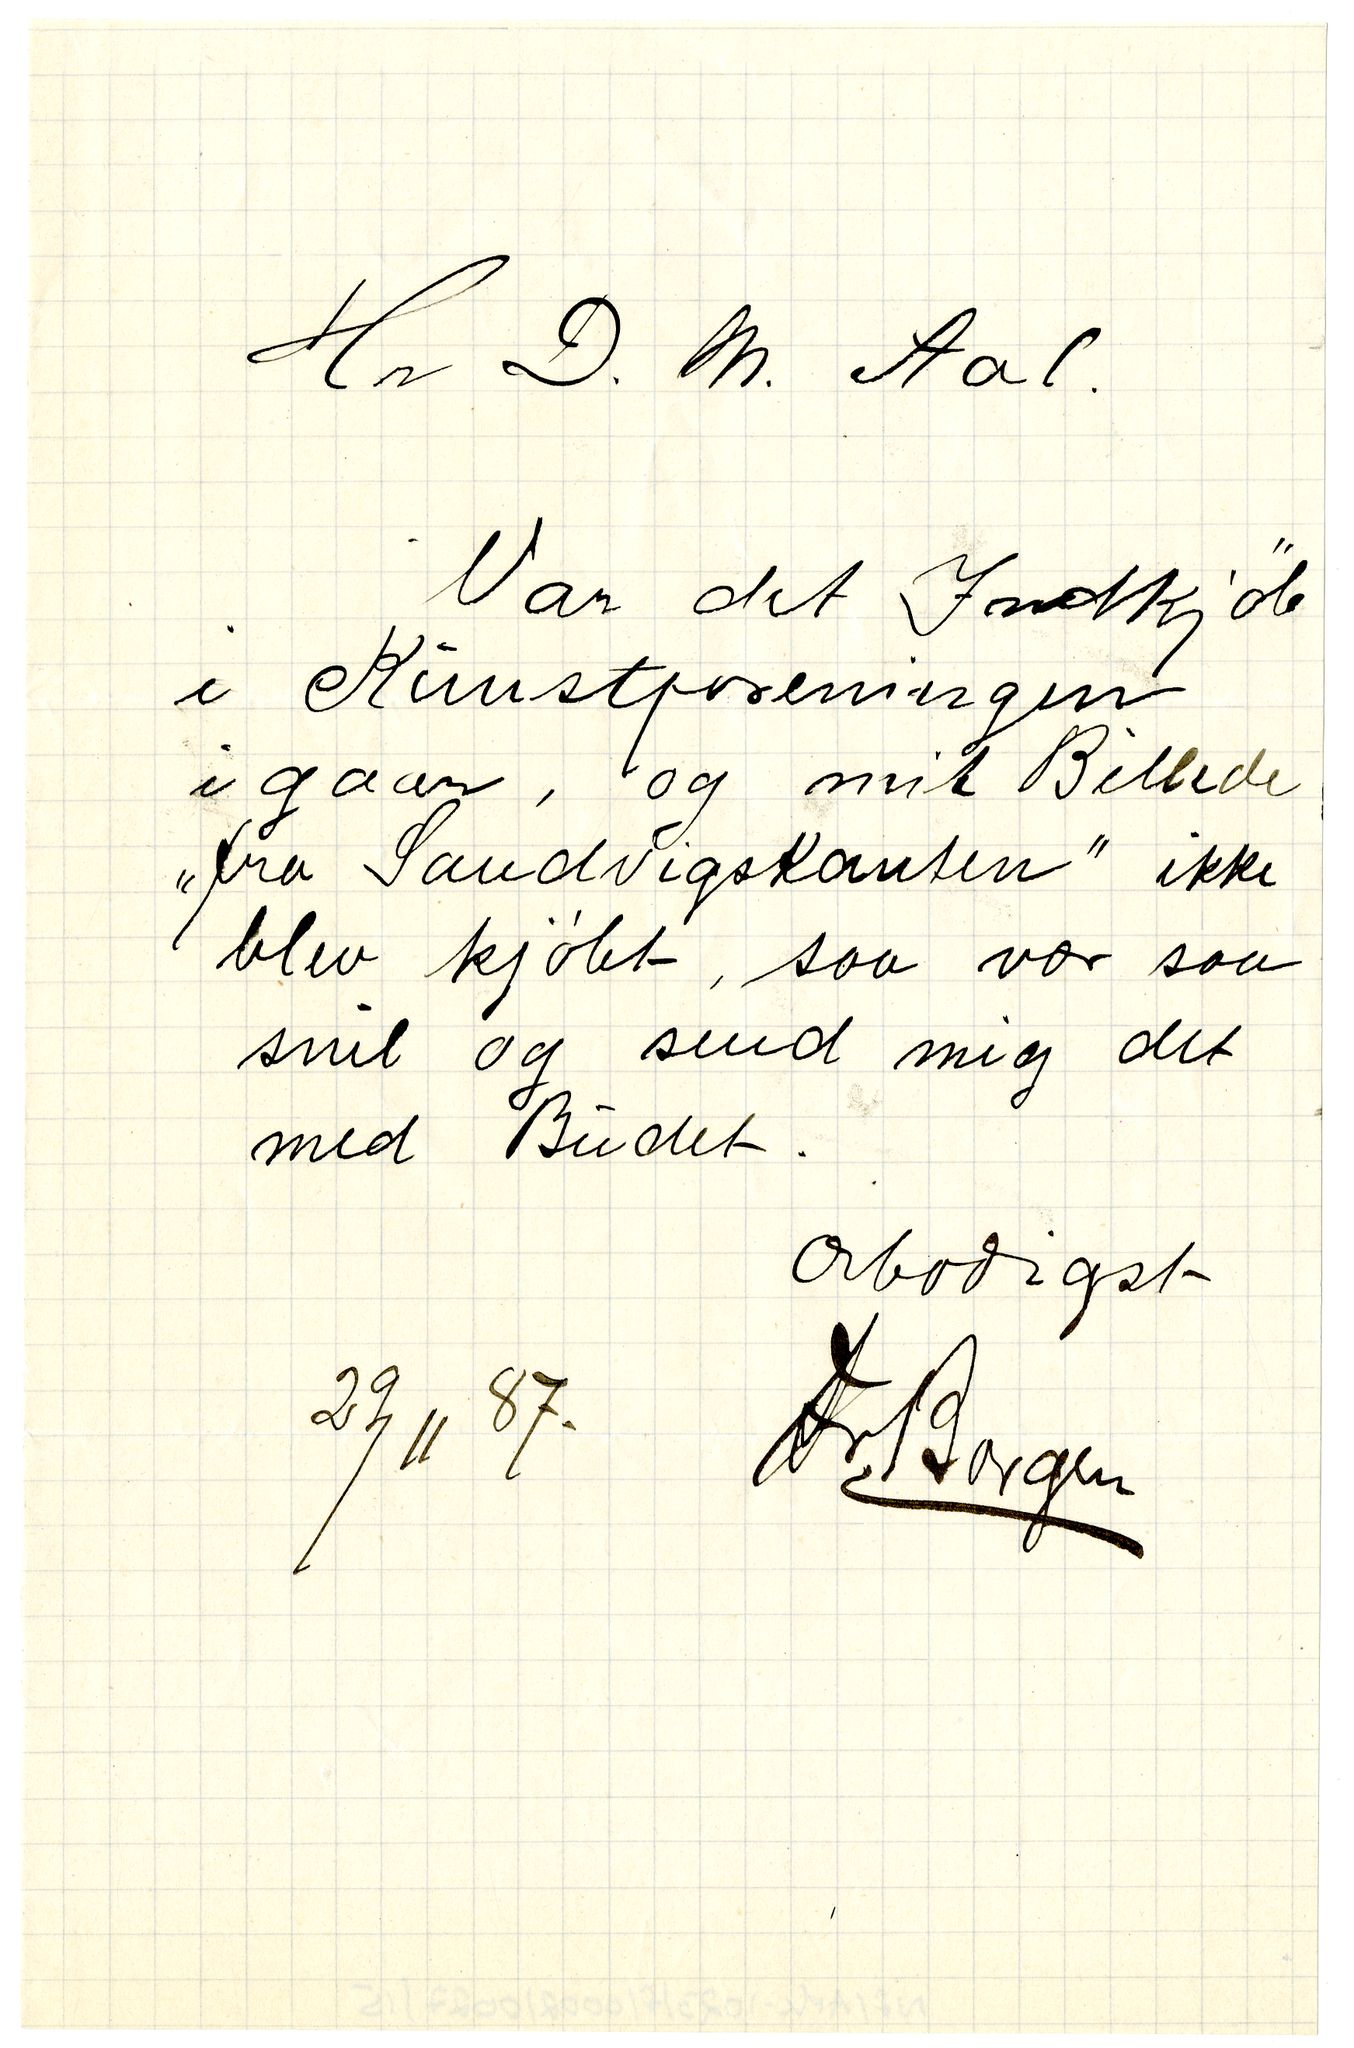 Hr D. M. Aal.
Var det Indkjöb
i Kunstforeningen
igaar, og mit Billede
„fra Sandvigskanten" ikke
blev kjöbt, saa vær saa
snil og send mig det
med Budet.
Ærbødigst
Fr. Borgen
29/11 87.